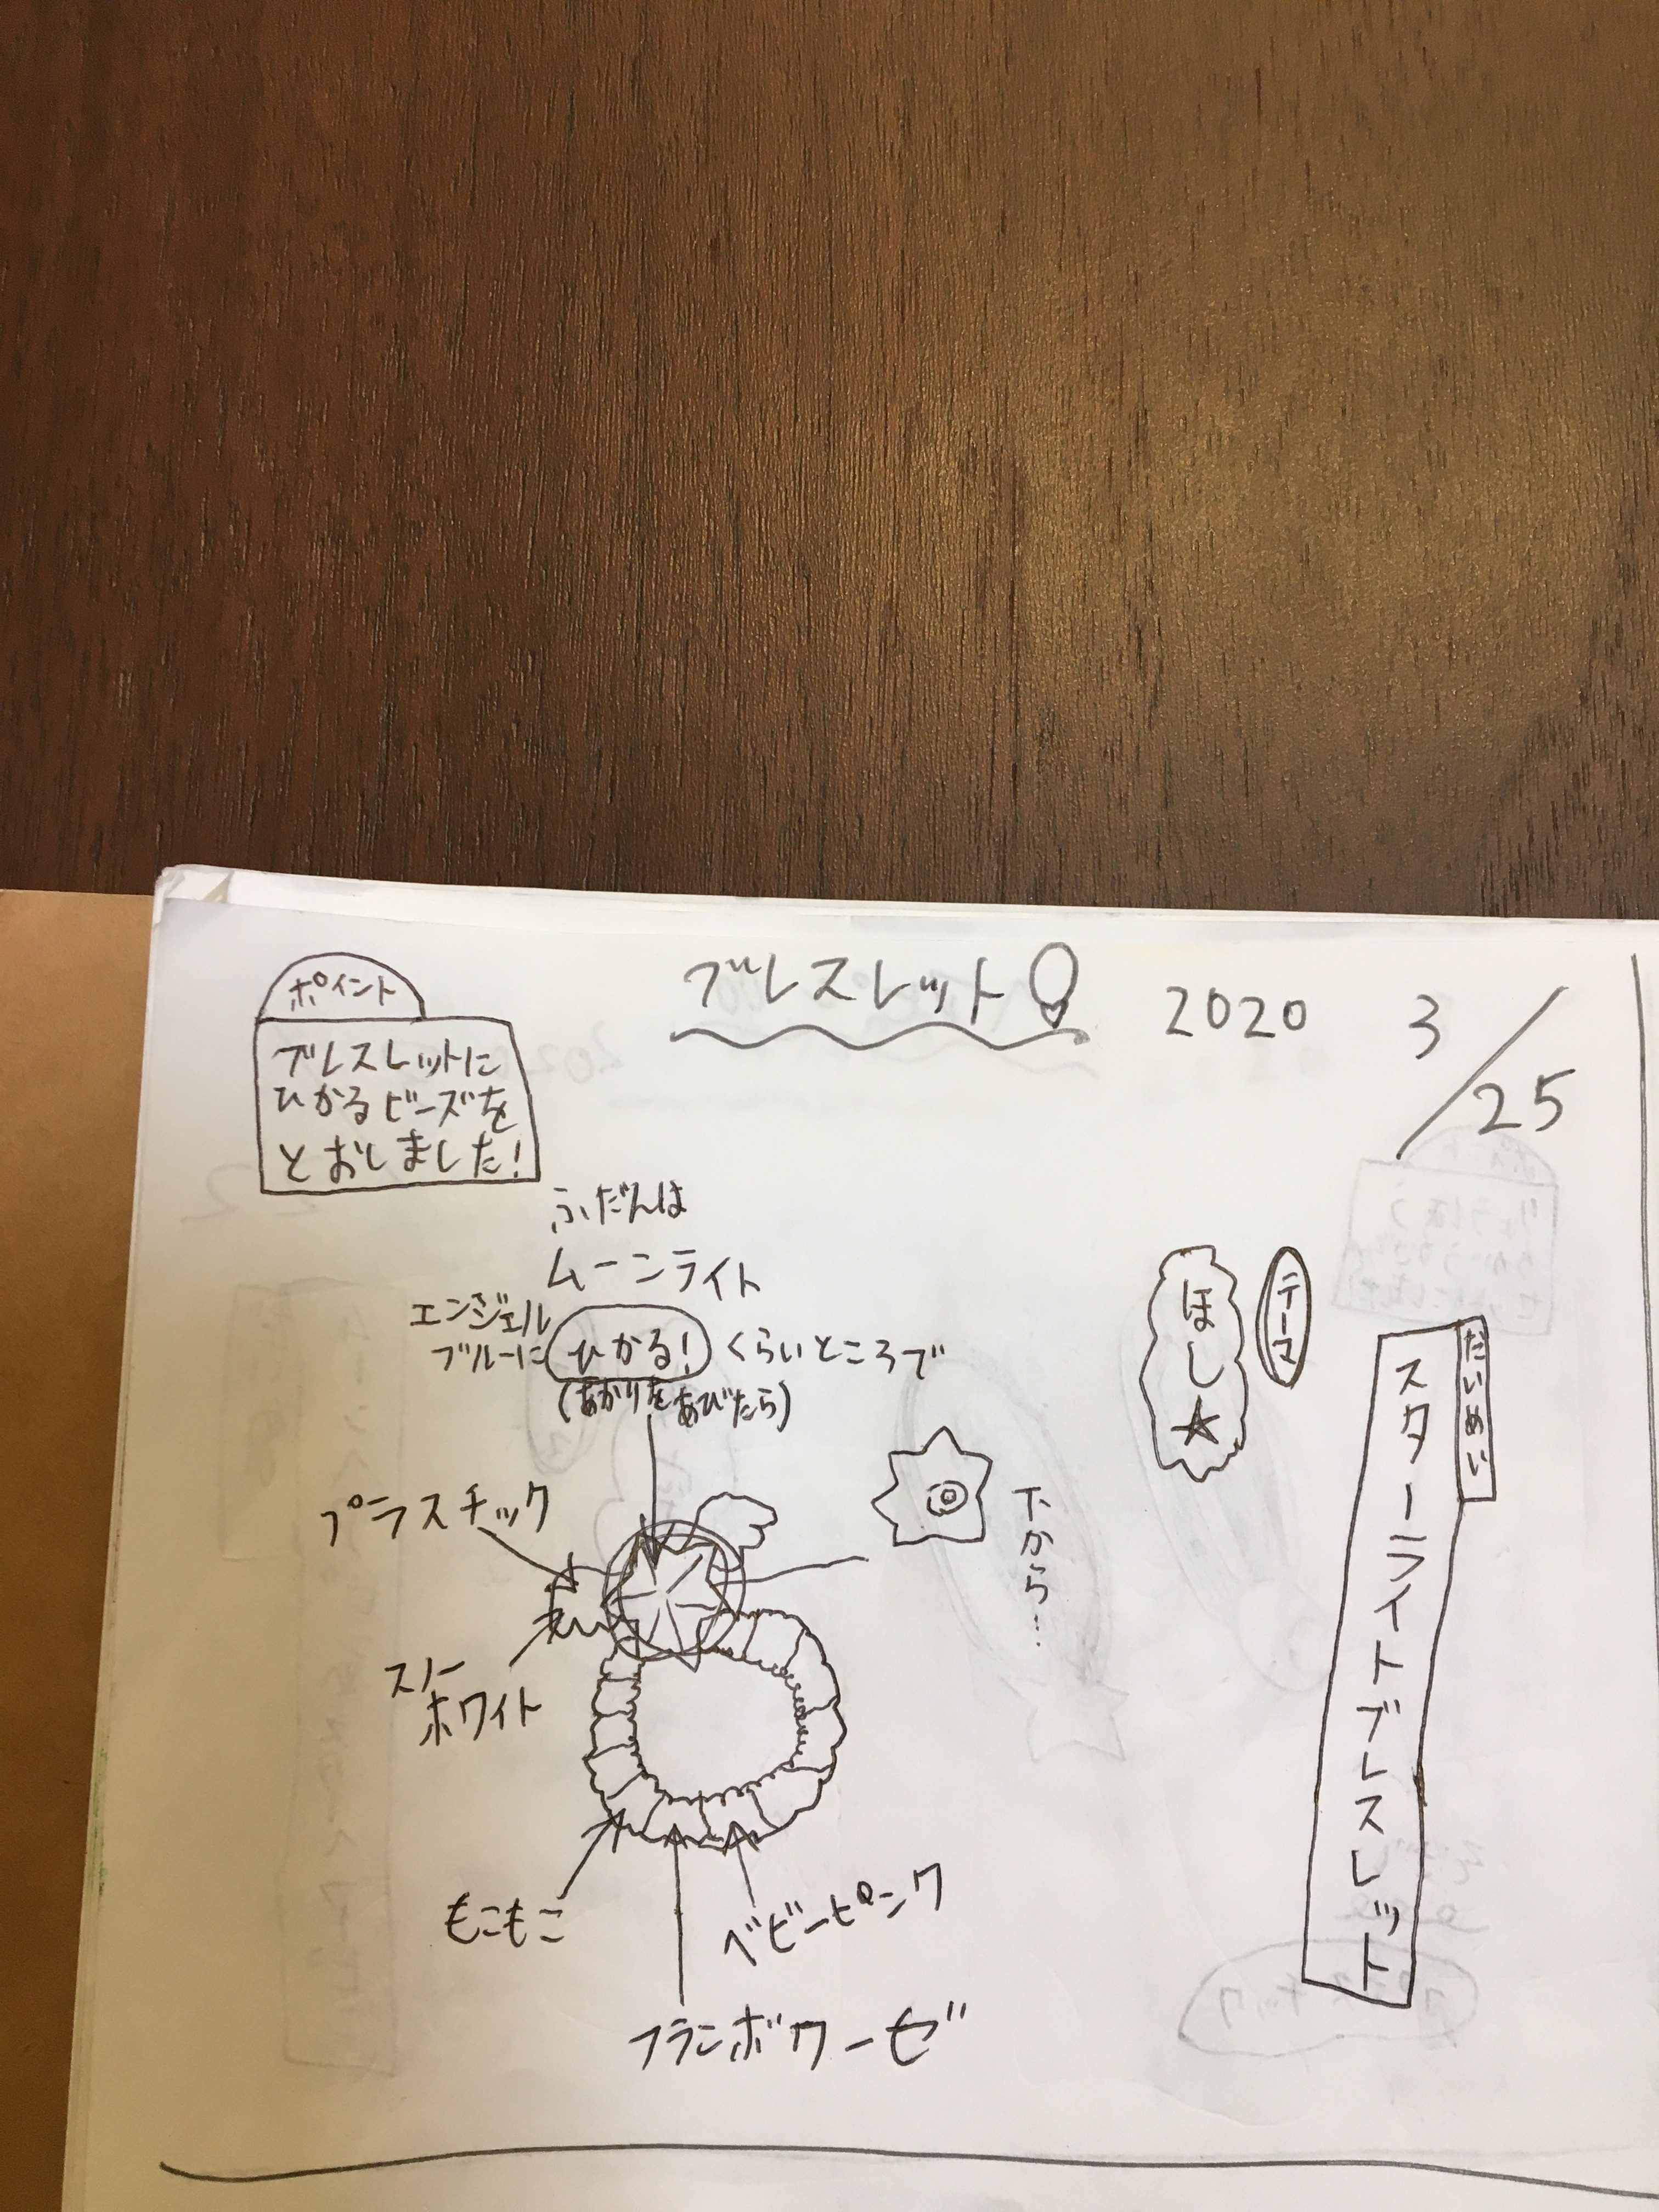 ブレスレット
2020 3/25
ポイント
ブレスレットに
ひかるビーズを
とおしました！
だいめい
スターライトブレスレット
テーマ
ほし★
ふだんは
ムーンライト
エンジェル
ブルーに
ひかる！
くらいところで
(あかりをあびたら)
プラスチック
下から…
スノー
ホワイト
もこもこ
ベビーピンク
フランボワーゼ